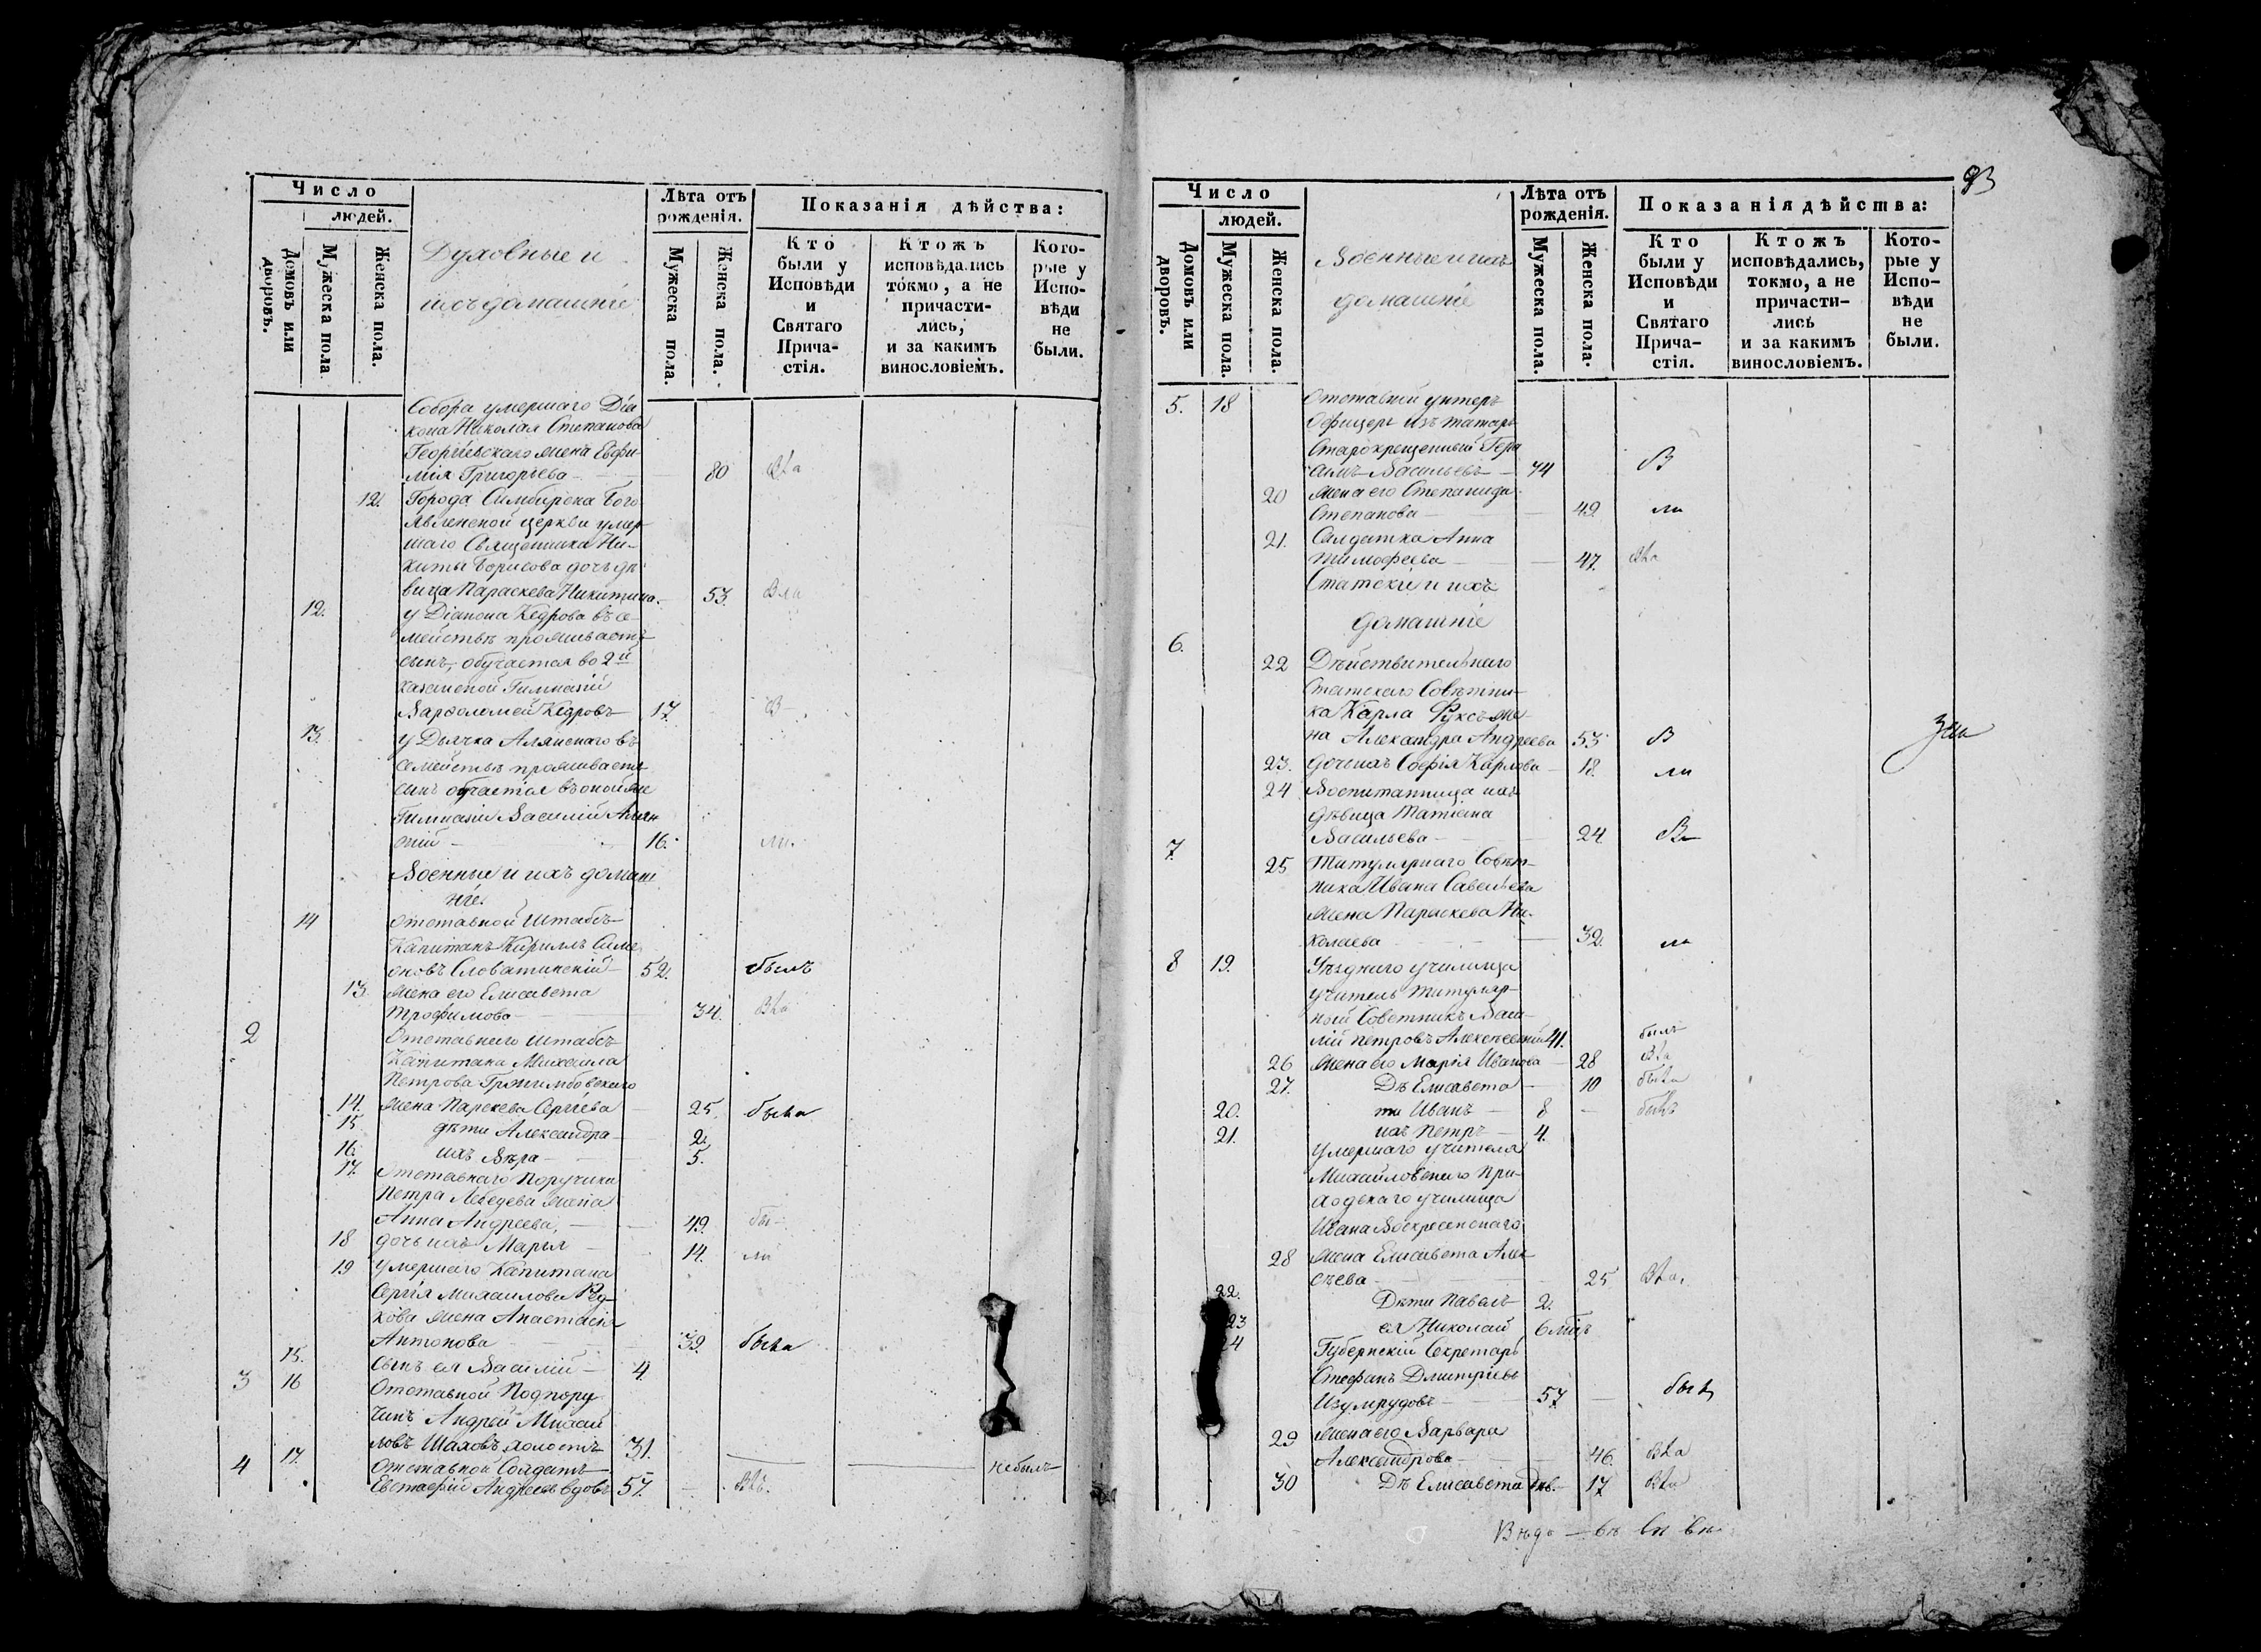 Число
людей.
Домовъ или дворовъ.
Мужеска пола.
Женска пола.
Духовные и
ихъ домашніе
Лѣта отъ
рожденія.
Мужеска пола.
Женска пола.
Показанія дѣйства:
Кто
были у
Исповѣди
и
Святаго
Прича-
стія.
Ктожъ
исповѣдались
токмо, а не
причасти-
лись,
и за какимъ
винословіемъ.
Кото-
рые у
Испо-
вѣди
не
были.
Собора умершаго Діа
кона Николая Степанова
Георгіевскаго жена Евфи-
мія Григорьева 80
12. Города Симбирска Бого
явленской церкви умер
шаго Священника Ни-
киты Борисова дочь дѣ
вица Параскева Никитина. 53.
12. у Діакона Кедрова въ се-
мействѣ проживаетъ
сынъ, обучается во 2й
казанской Гимназіи
Варфоломей Кедровъ 17 В
13. у Дьячка Алянскаго въ
семействѣ проживаетъ
сынъ обучается въ оной же
Гимназіи Василій Алян
скій 16. ли.
Военные и ихъ домаш
ніе.
14 Отставной Штабсъ
Капитанъ Кириллъ Симе
оновъ Словатинскій 52. былъ
13. Жена его Елисавета
Трофимова 34.
2 Отставнаго Штабсъ
Капитана Михаила
Петрова Гржимбовскаго
14. жена Парскева Сергіева 25. была
15 дѣти Александра 2.
16. ихъ Вѣра 5.
17. Отставнаго Поручика
Петра Лебедева жена
Анна Андреева, 49. бы-
18 дочь ихъ Марія 14. ли
19 Умершаго Капитана
Сергія Михаилова Ред-
кова жена Анастасія
Антонова 39. была
15. сынъ ея Василій 4.
3 16 Отставной Подпору
чикъ Андрей Михаи
ловъ Шаховъ холостъ 31. небылъ
4 17. Отставной Солдатъ
Евстафій Андреевъ вдовъ 57.
93
Число
людей.
Домовъ или дворовъ.
Мужеска пола.
Женска пола.
Военные и ихъ
домашніе
Лѣта отъ
рожденія.
Мужеска пола.
Женска пола.
Показанія дѣйства:
Кто
были у
Исповѣди
и
Святаго
Прича-
стія.
Ктожъ
исповѣдались,
токмо, а не
причасти-
лись
и за какимъ
винословіемъ.
Кото-
рые у
Испо-
вѣди
не
были.
5. 18 Отставной унтеръ
Офицеръ изъ татаръ
Старокрещенный Гера
симъ Васильевъ 74 В
20 Жена его Степанида
Степанова 49. ли
21. Салдатка Анна
Тимофеева 47.
Статскіе и ихъ
домашніе
6.
22 Дѣйствительнаго
Статскаго Совѣтни-
ка Карла Фуксъ же-
на Александра Андреева 53 В
23. дочь ихъ Софія Карлова 18. ли
24 Воспитанница ихъ
дѣвица Татіана
Васильева 24
7.
25 Титулярнаго Совѣт-
ника Ивана Савельева
жена Параскева Ни-
колаева 32. ли
8 19. Уѣзднаго училища
учитель Титуляр-
ный Советникъ Васи-
лій Петровъ 41. былъ
26 Жена его Марія Иванова 28
27. Дѣ Елисавета 10 была
20. ти Иванъ 8 былъ
21. ихъ Петръ 4.
Умершаго учителя
Михайловскаго При-
ходскаго училища
Ивана Воскресенскаго
28 Жена Елисавета Алек
сѣева 25
22. Дѣти Павелъ 2.
23 ея Николай 6 мцъ
24 Губернскій Секретарь
Стефанъ Дмитріевъ
Изумрудовъ 57 былъ
29 Жена его Варвара
Александрова 46.
30 Дѣ Елисавета дѣв. 17